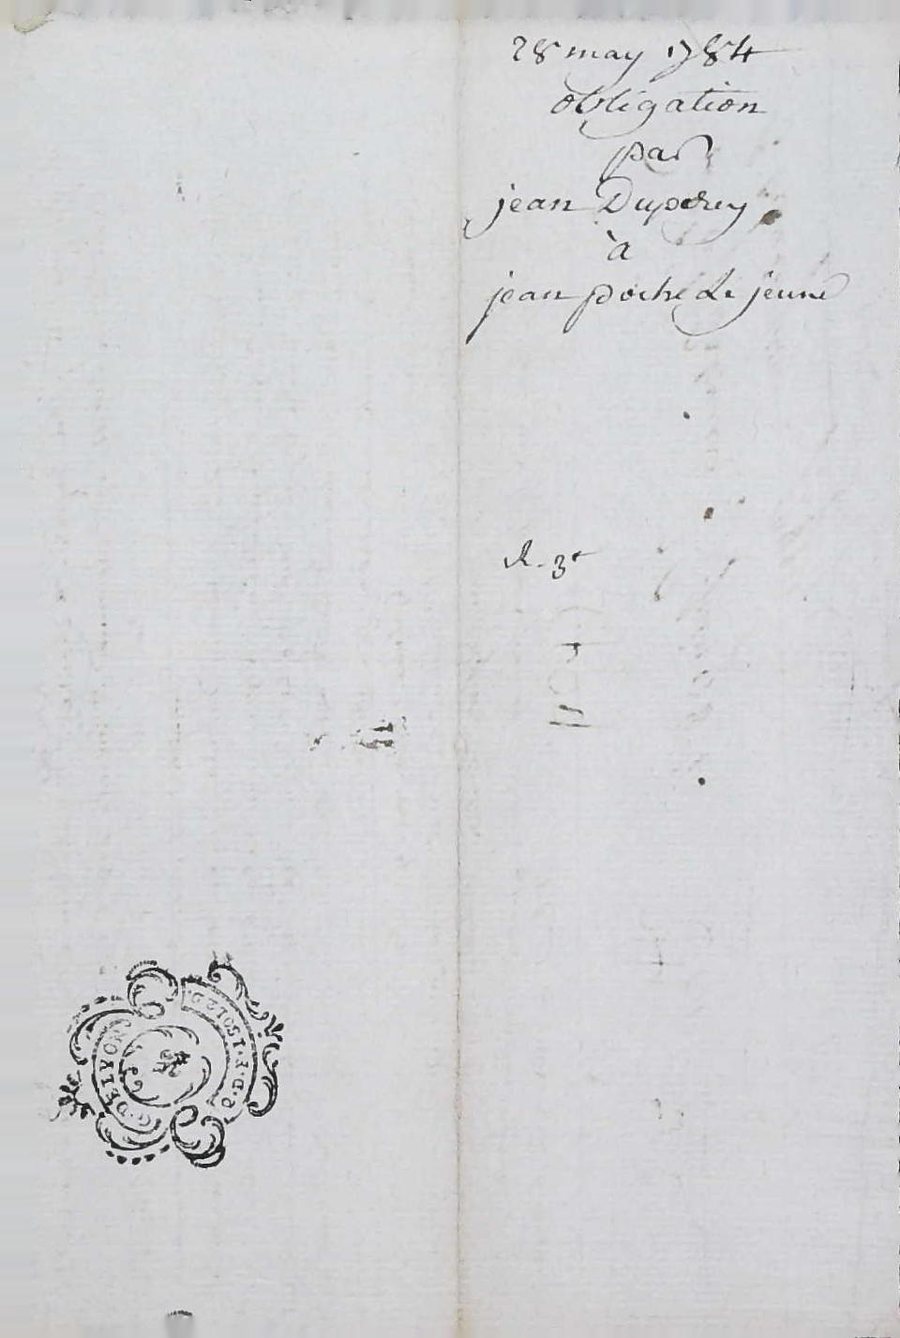 28 may 1784
obligation
par
jean Duperey
à
jean poche Le jeune
R. 3e
G. DE LYON